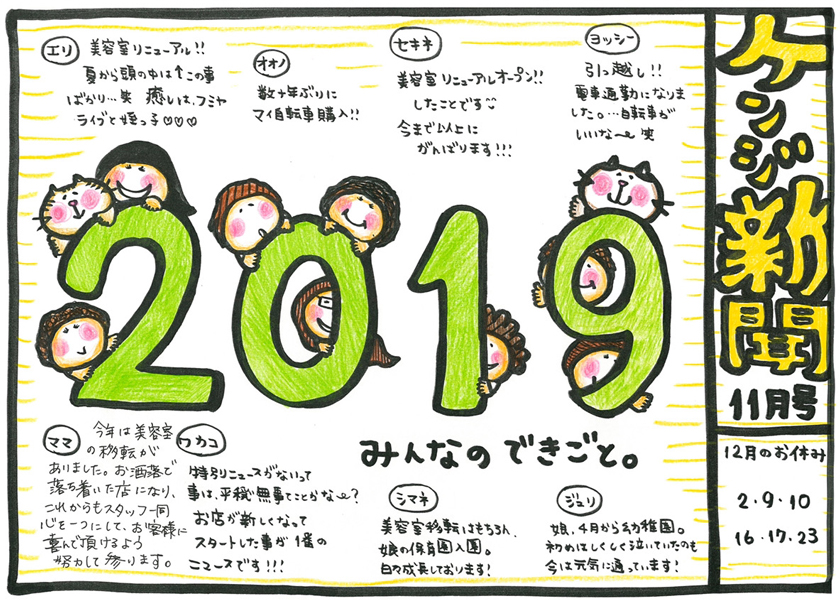 ケンジ新聞
11月号
12月のお休み
2・9・10
16・17・23
エリ
美容室リニューアル!!
夏から頭の中は↑この事
ばかり…笑 癒しは、フミヤ
ライブと姪っ子♡♡♡
オオノ
数十年ぶりに
マイ自転車購入!!
セキネ
美容室リニューアルオープン!!
したことです
今まで以上に
がんばります!!!
ヨッシー
引っ越し!!
電車通勤になりま
した。…自転車が
いいな〜 笑
2019
みんなの できごと。
ママ
今年は美容室
の移転が
ありました。お洒落で
落ち着いた店になり、
これからもスタッフ一同
心を一つにして、お客様に
喜んで頂けるよう
努力して参ります。
ワカコ
特別ニュースがないって
事は、平穏無事ってことかな〜?
お店が新しくなって
スタートした事が1番の
ニュースです!!!
シマネ
美容室移転はもちろん、
娘の保育園入園。
日々成長しております!
ジュリ
娘、4月から幼稚園。
初めはしくしく泣いていたのも
今は元気に通っています!